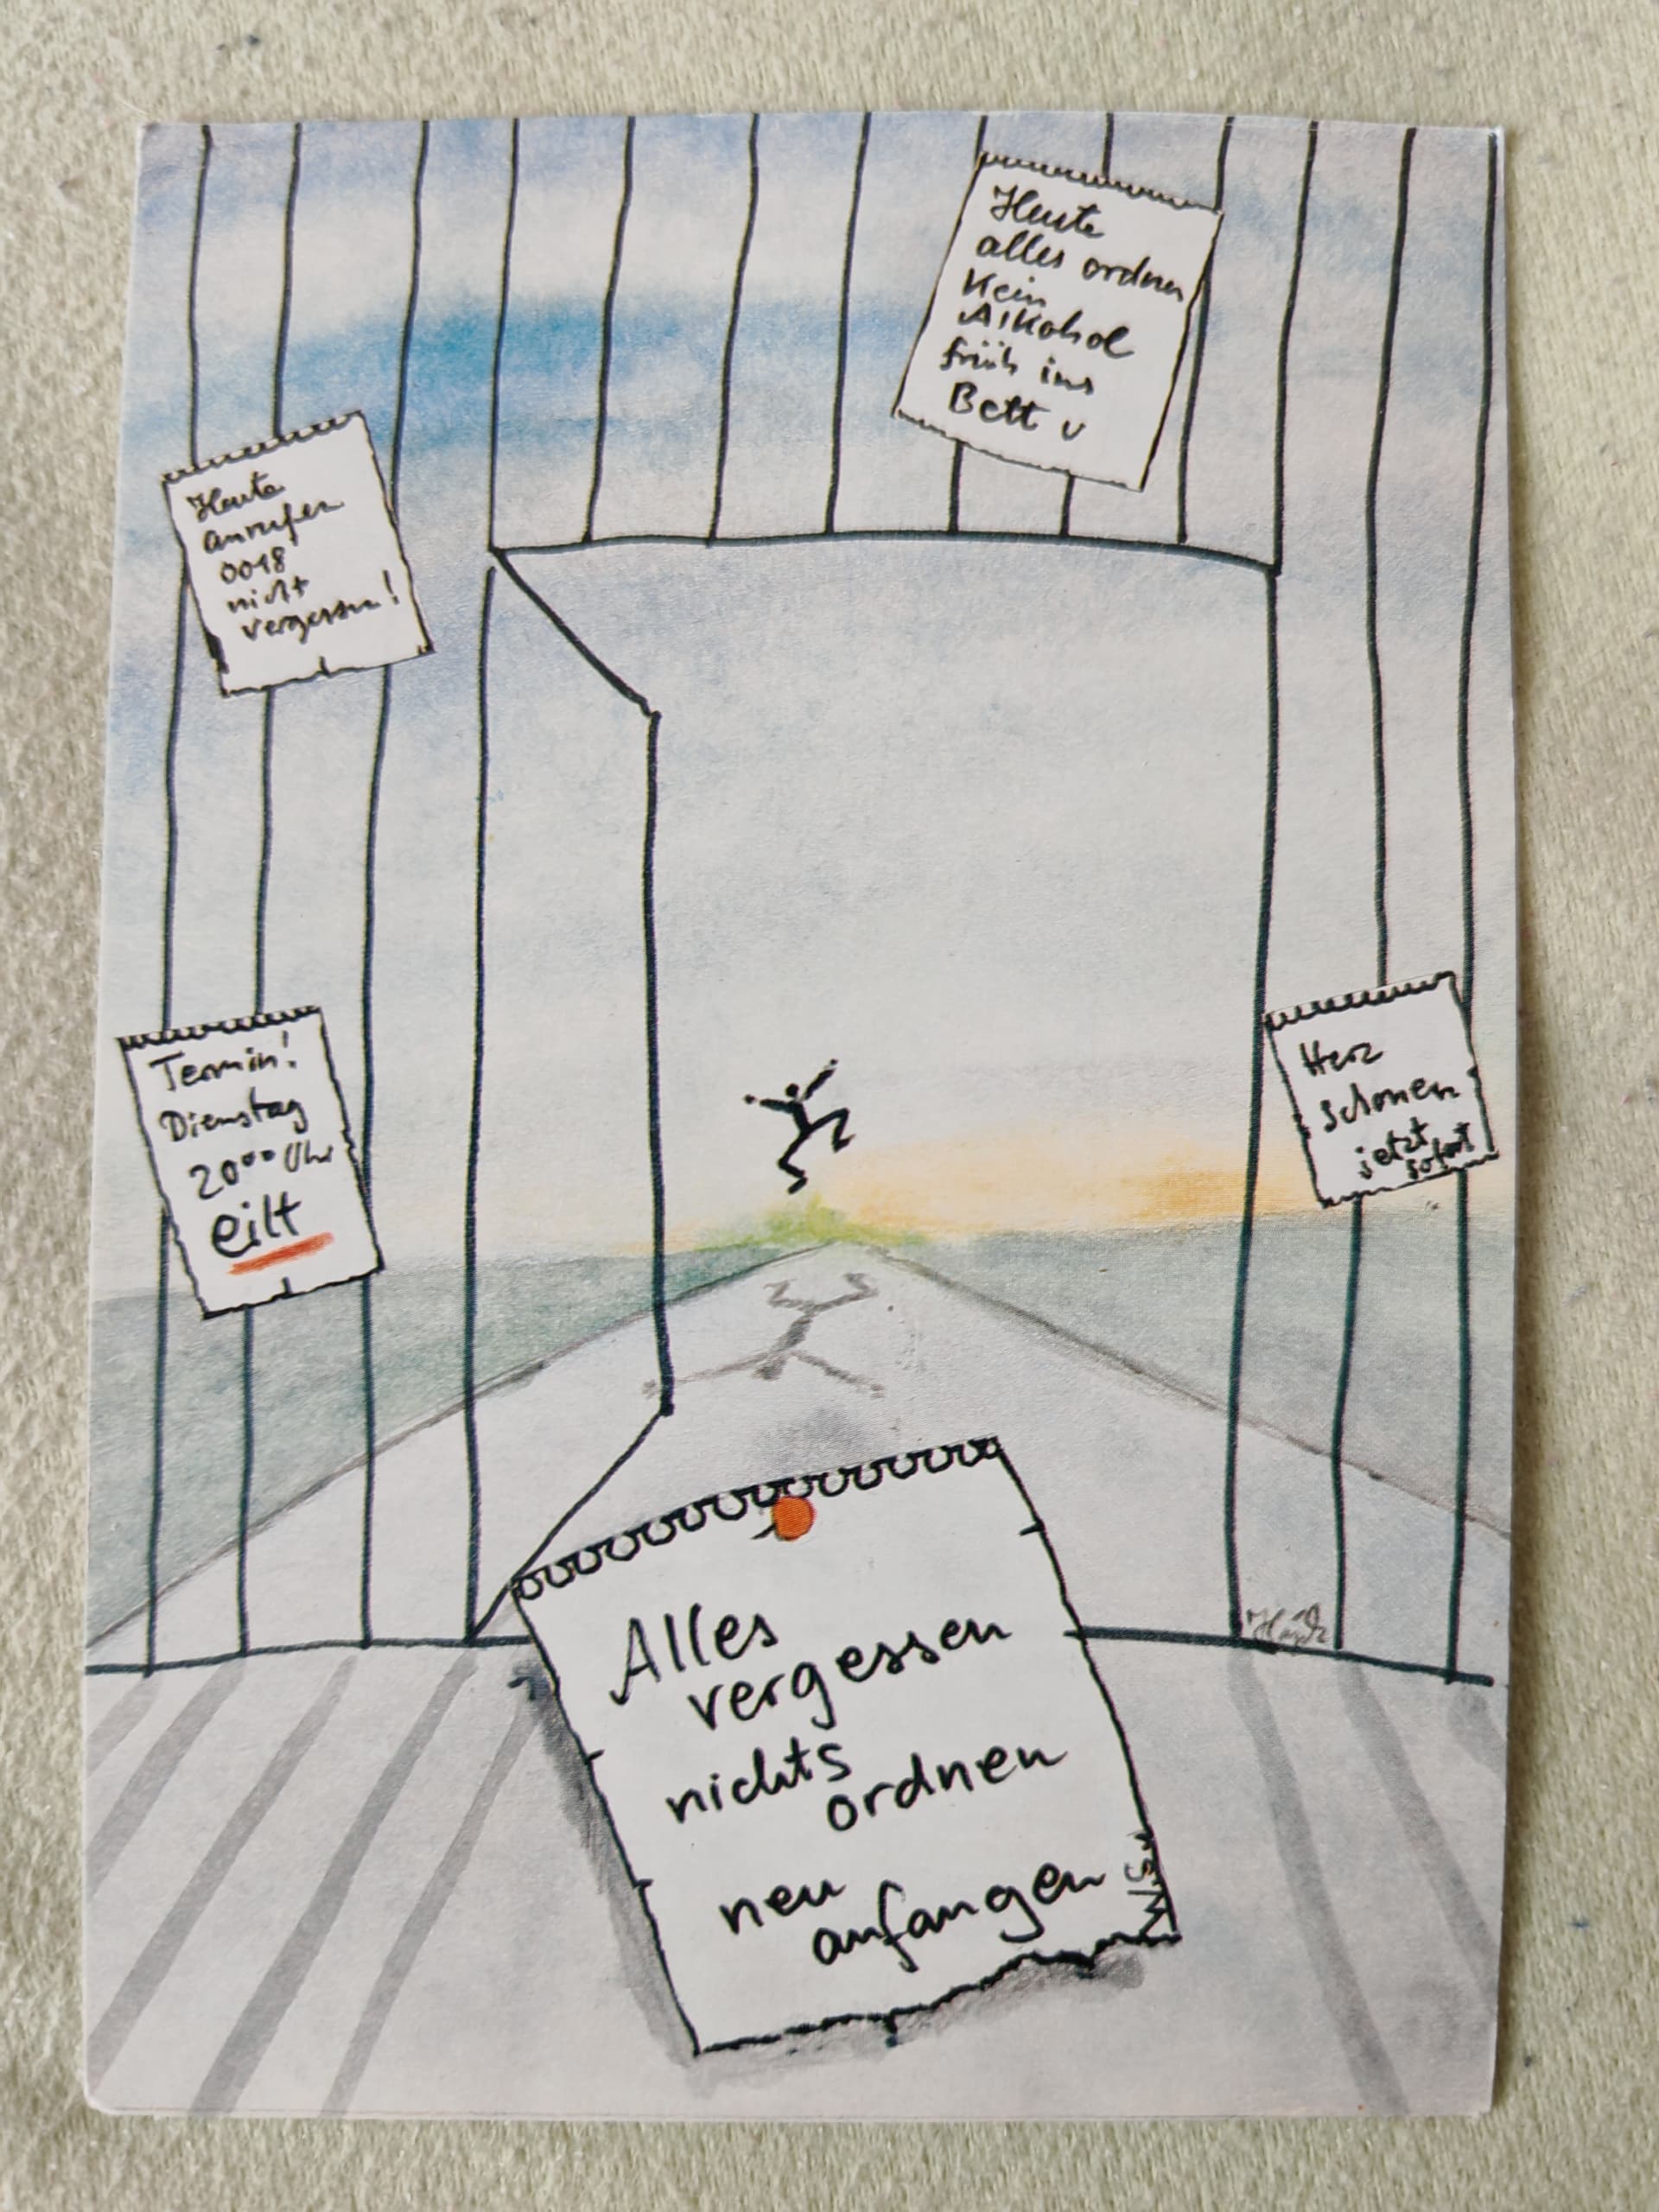 Heute
alles ordnen
Kein
Alkohol
früh ins
Bett
Heute
anrufen
0018
nicht
vergessen!
Termin!
Dienstag
20⁰⁰ Uhr
eilt
Herz
schonen
jetzt
sofort
Alles
vergessen
nichts
ordnen
neu
anfangen